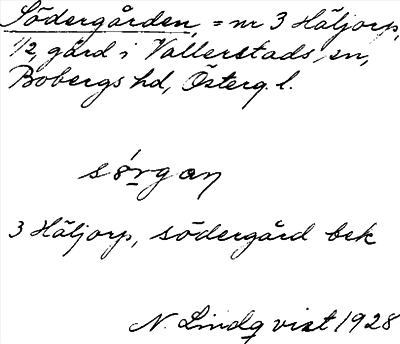 Södergården, = nr 3 Häljorp,
1/2, gård i Vallerstads sn,
Bobergs hd, Österg. l.
sǿrgan
3 Häljorp, södergård bek
N. Lindqvist 1928